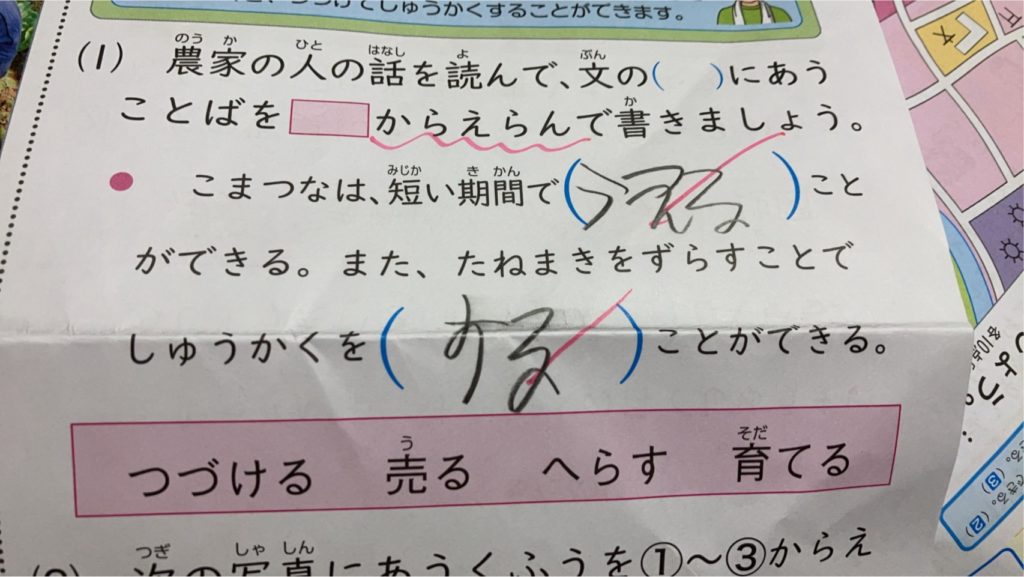 つづけてしゅうかくすることができます。
(1) 農家の人の話を読んで、文の( )にあう
ことばを からえらんで書きましょう。
● こまつなは、短い期間で(うえる)こと
ができる。また、たねまきをずらすことで
しゅうかくを(する)ことができる。
つづける 売る へらす 育てる
次の写真にあうくふうを①〜③からえ